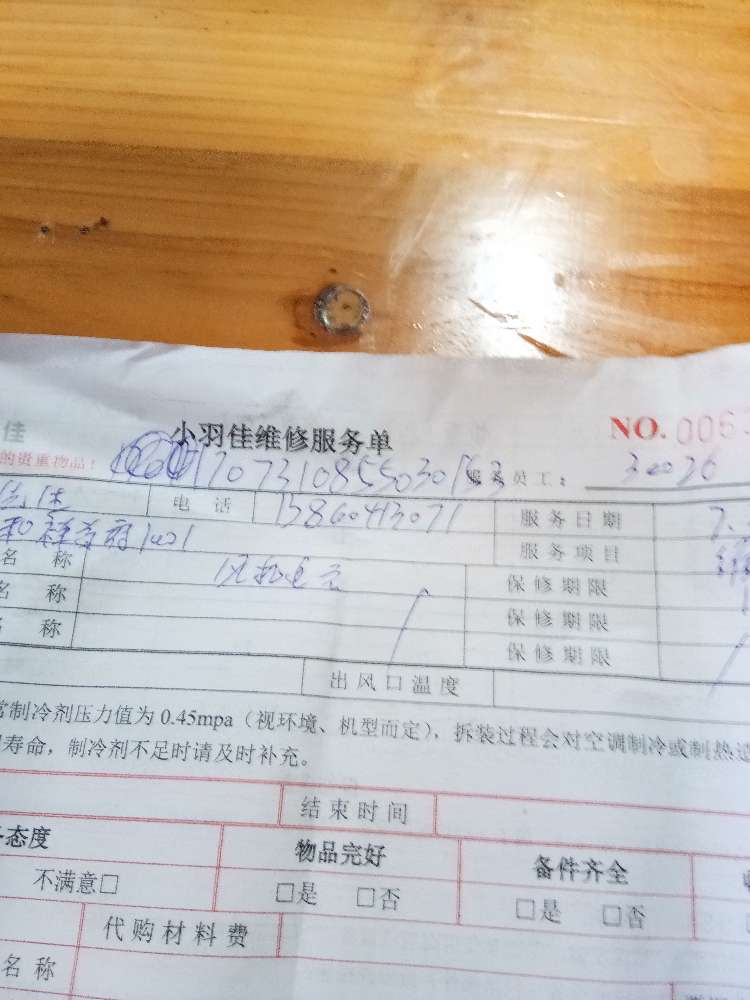 佳 小羽佳维修服务单 NO. 006
的贵重物品! 17073108550301 服务员工: 30026
电 话 13860413071 服务日期 7.
1401 服务项目 维
名 称 风机电容 保修期限
名 称 保修期限
名 称 保修期限
出风口温度
常制冷剂压力值为 0.45mpa(视环境、机型而定),拆装过程会对空调制冷或制热造
寿命,制冷剂不足时请及时补充。
结束时间
态度 物品完好 备件齐全
不满意□ □是 □否 □是 □否
代购材料费
名 称